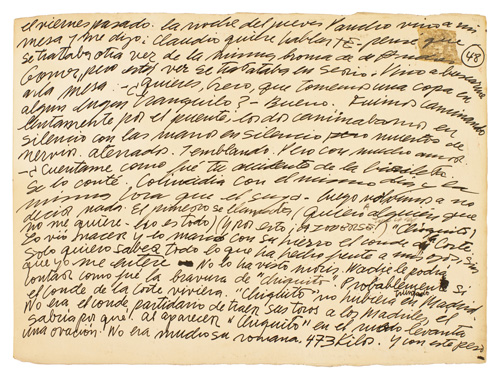 el viernes pasado. La noche del jueves Pancho vino a mi
mesa y me dijo: Claudio quiere hablarte - pensé que
se trataba otra vez de la misma broma de
Gomez, pero esta vez se trataba en serio. Vino a buscarme
a la mesa. -¿Quieres, Greco, que tomemos una copa en
algun lugar tranquilo? - Bueno. Fuimos caminando
lentamente por el puente, los dos caminabamos en
silencio con las manos en silencio pero muertos de
nervios. aterrados. Temblando. Pero con mucho amor.
-¿Cuentame como fué tu accidente de la bicicleta.
Se lo conté. Coincidia con el mismo dia y la
misma hora que el suyo. Luego volvimos a no
decir nada. El primero se llamaba (Quiero a alguien que
no me quiere. Eso es todo) (y por esto, ) "Chiquito".
Lo vió nacer y lo marcó con su hierro el conde de la Corte
Solo quiero saber todo lo que ha hecho frente a mis ojos, sin
que yo me entere - No lo ha visto morir. Nadie le podra
contar como fué la bravura de "Chiquito". Probablemente si
el conde de la Corte viviera. "Chiquito" no hubiera triunfado en Madrid
No era el conde partidario de traer sus toros a los Madriles, él
sabria por qué. Al aparecer "Chiquito" en el ruedo levanta
una ovación. No era mucho su romana. 473 Kilos. Y con este peso
48